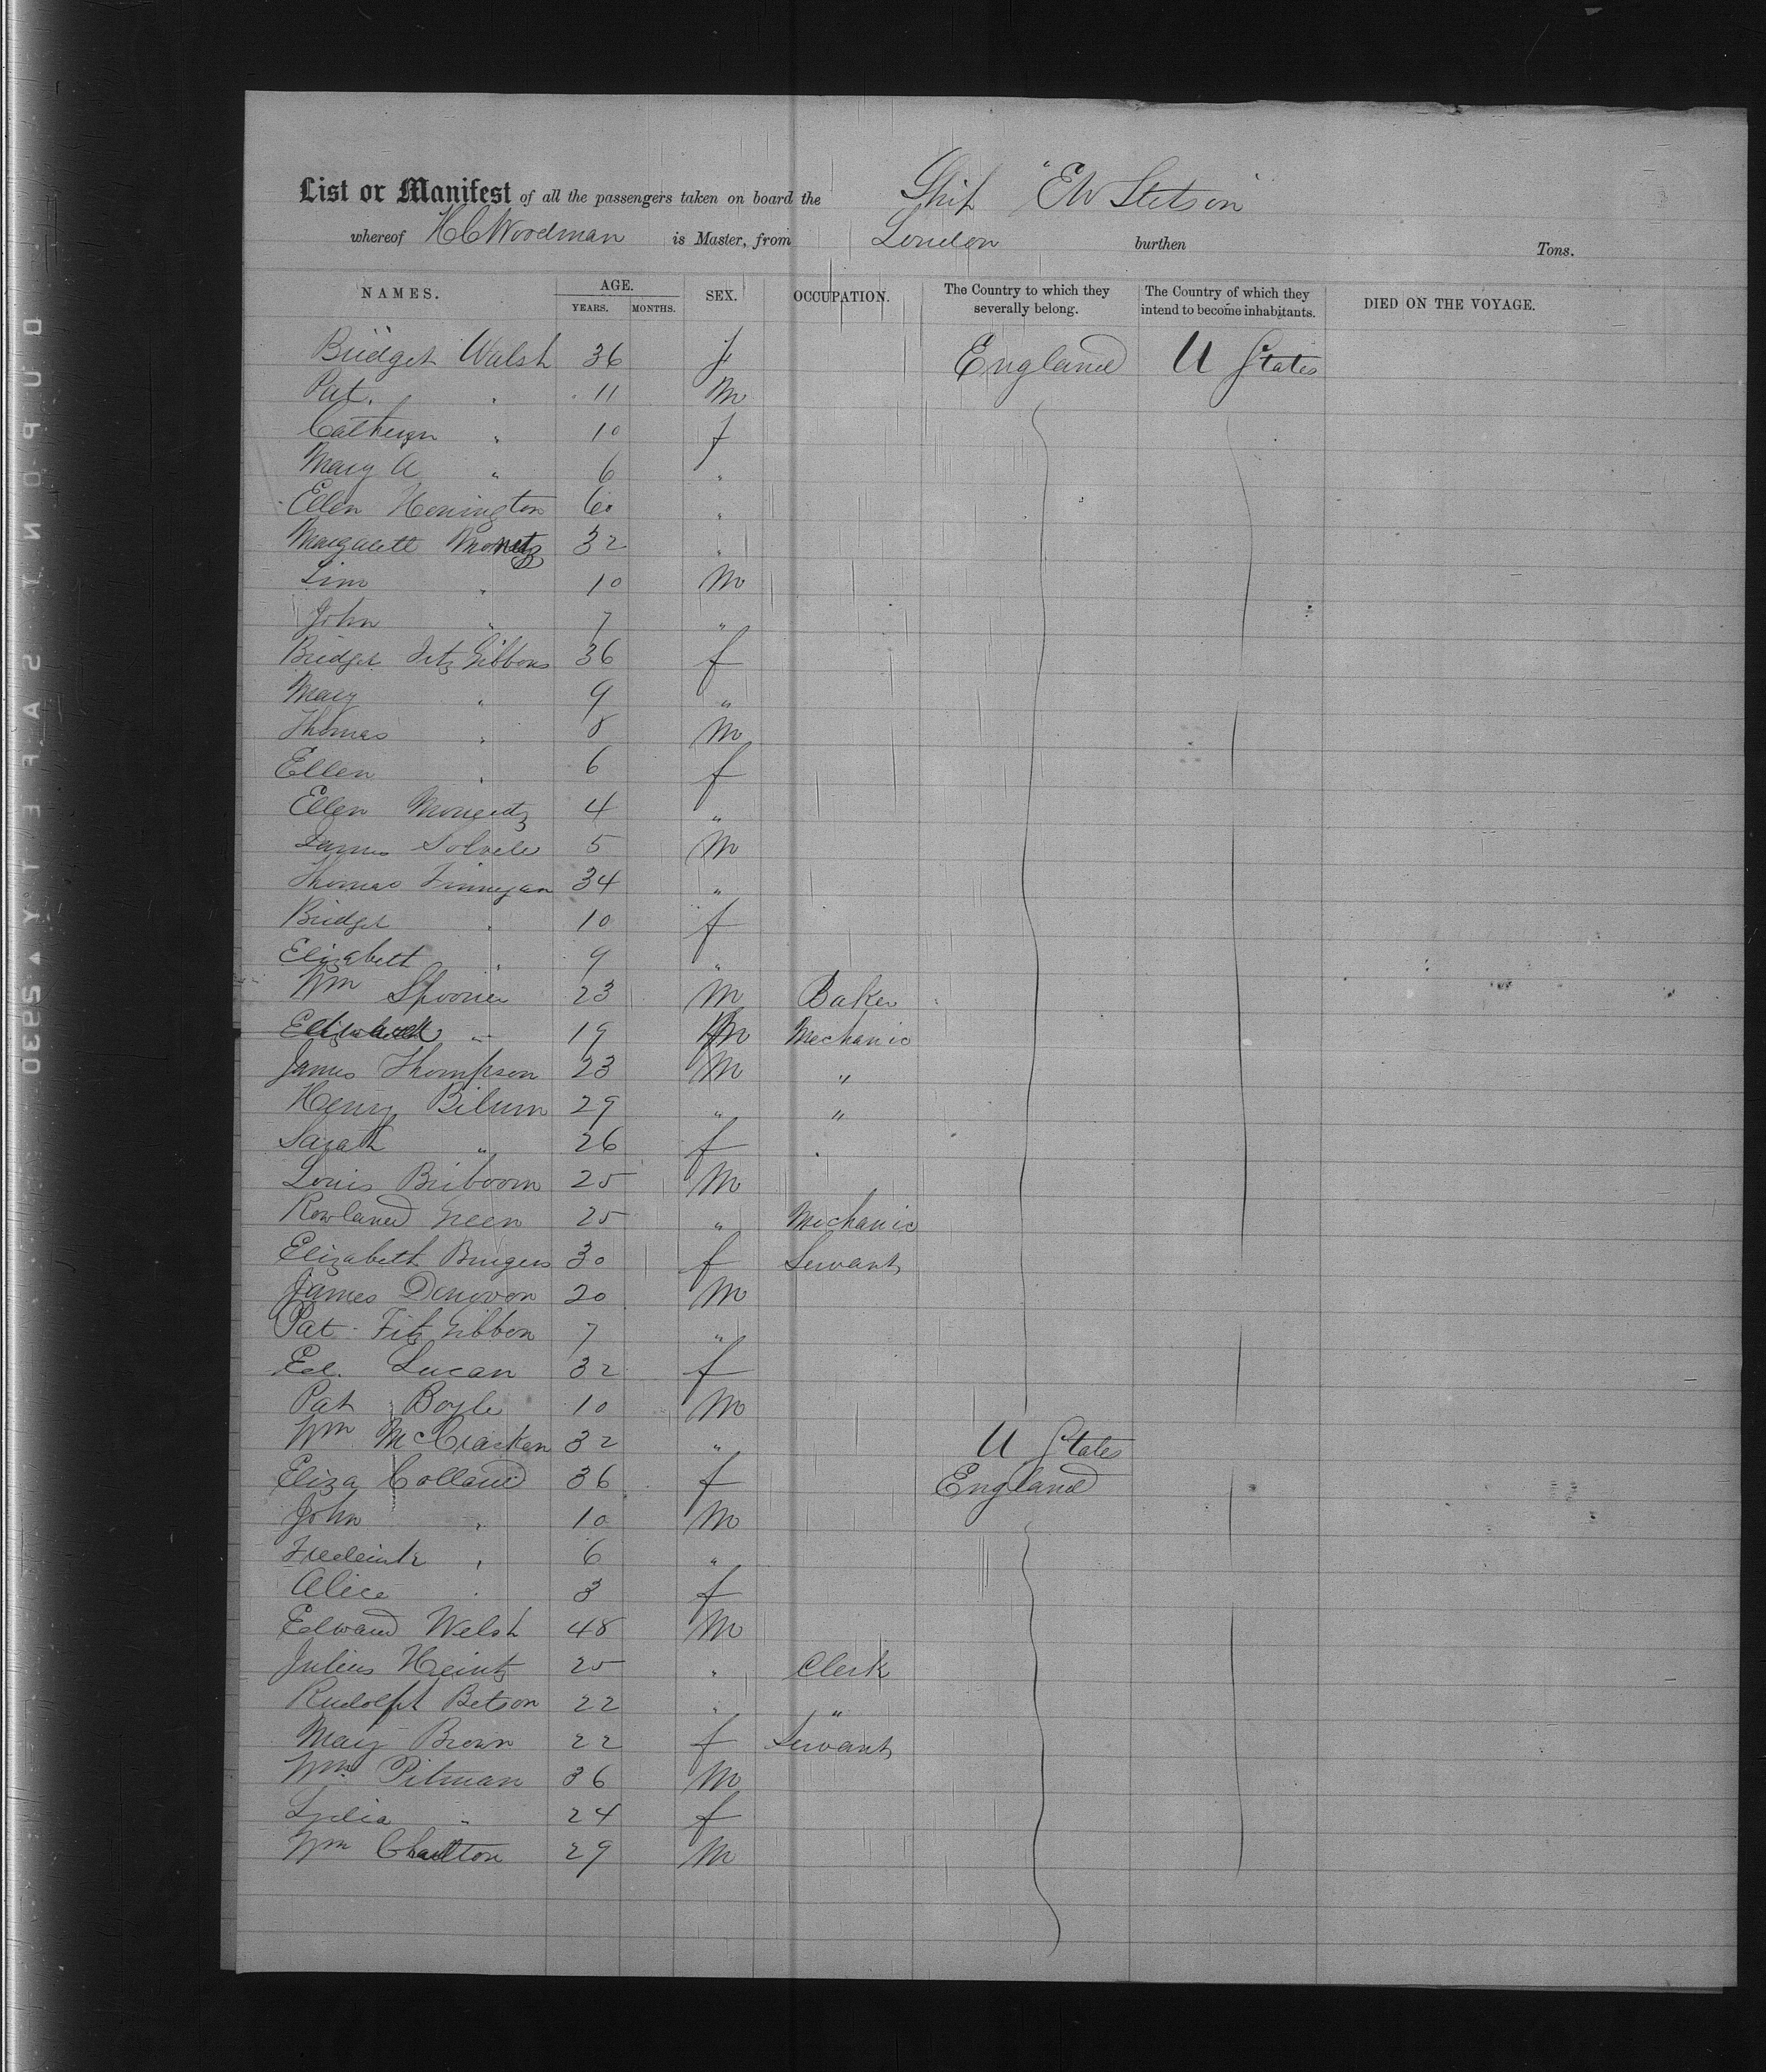 List or Manifest of all the passengers taken on board the Ship "EW Stetson"
whereof H C Woodman is Master, from London burthen Tons.
NAMES. AGE. YEARS. MONTHS. SEX. OCCUPATION. The Country to which they severally belong. The Country of which they intend to become inhabitants. DIED ON THE VOYAGE.
Bridget Walsh 36 f England U States
Pat. " 11 M
Cathern " 10 f
Mary A " 6 "
Ellen Henington 60 "
Margarett 32 "
Jim " 10 M
John " 7 "
Bridget Fitz Gibbons 36 f
Mary " 9 "
Thomas " 8 M
Ellen " 6 f
Ellen 4 "
James 5 M
Thomas Finnegan 34 "
Bridget " 10 f
Elizabeth " 9 "
Wm Spooner 23 M Baker
Edward " 19 M Mechanic
James Thompson 23 M "
Henry Bilum 29 " "
Sarah " 26 f
Louis 25 M
Rowland Green 25 " Mechanic
Elizabeth Burgess 30 f Servant
James Donovon 20 M
Pat Fitz Gibbon 7 "
Ed. Lucan 32 f
Pat Boyle 10 M
Wm McCracken 32 " U States
Eliza Colland 36 f England
John " 10 M
Frederick " 6 "
Alice " 3 f
Edward Welsh 48 M
Julius Heintz 25 " Clerk
Rudolph Betson 22 " "
Mary Brown 22 f Servant
Wm Pitman 36 M
Lydia " 24 f
Wm Charlton 29 M
DUPONT SAFETY ▲ S9530